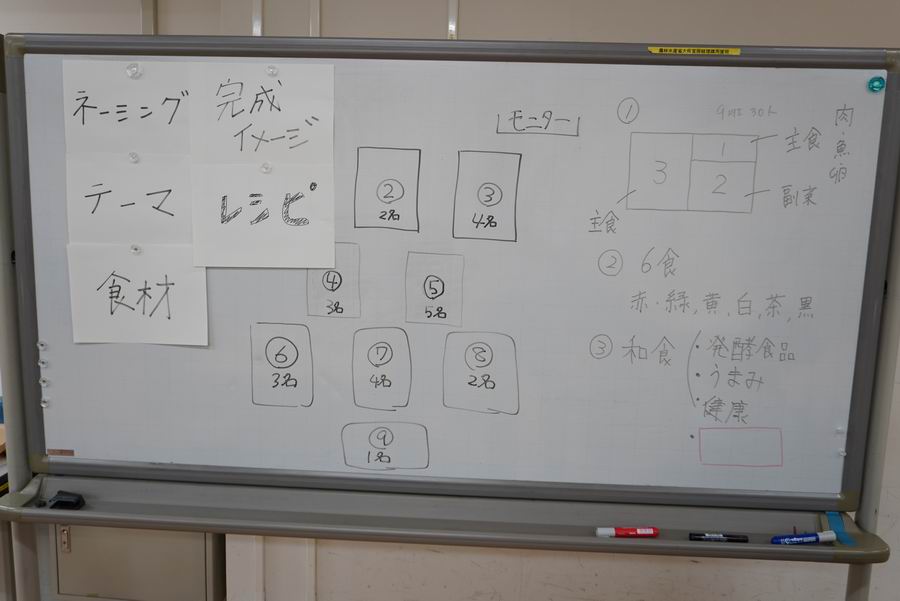 ネーミング
完成
イメージ
テーマ
レシピ
食材
モニター
②
2名
③
4名
④
3名
⑤
5名
⑥
3名
⑦
4名
⑧
2名
⑨
1名
①
肉・魚・卵
3
1
2
主食
副菜
主食
② 6食
赤・緑,黄,白,茶,黒
③ 和食
・発酵食品
・うまみ
・健康
・